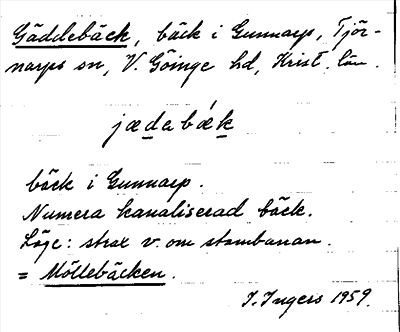 Gäddebäck, bäck i Gunnarp, Tjör-
narps sn, V. Göinge hd, Krist. län.
jædabæk
bäck i Gunnarp.
Numera kanaliserad bäck.
Läge: strax v. om stambanan.
= Möllebäcken.
I. Ingers 1959.